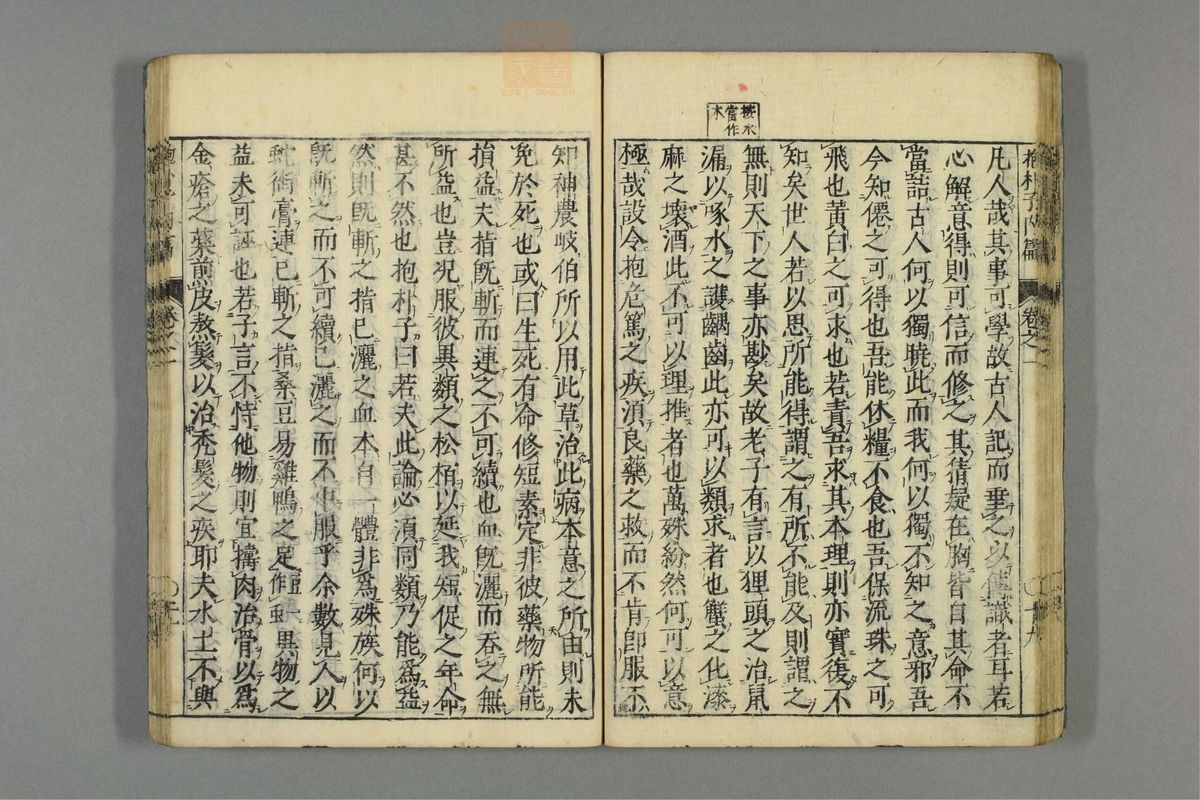 按水
當作
木
凡人哉其事可學故古人記而垂之以傳識者耳若
心解意得則可信而修之其猜疑在胸皆自其命不
當詰古人何以獨曉此而我何以獨不知之意邪吾
今知僊之可得也吾能休糧不食也吾保流珠之可
飛也黃白之可求也若責吾求其本理則亦實復不
知矣世人若以思所能得謂之有所不能及則謂之
無則天下之事亦尠矣故老子有言以狸頭之治鼠
漏以啄水之護齲齒此亦可以類求者也蟹之化漆
麻之壞酒此不可以理推者也萬殊紛然何可以意
極哉設令抱危篤之疾須良藥之救而不肯即服不
知神農岐伯所以用此草治此病本意之所由則未
免於死也或曰生死有命修短素定非彼藥物所能
損益夫指既斬而連之不可續也血既灑而吞之無
所益也豈況服彼異類之松栢以延我短促之年命
甚不然也抱朴子曰若夫此論必須同類乃能爲益
然則既斬之指已灑之血本自一體非爲殊族何以
既斬之而不可續已灑之而不中服乎余數見人以
蛇銜膏連已斬之指桑豆易雞鴨之足異物之
益未可誣也若子言不恃他物則宜擣肉治骨以爲
金瘡之藥煎皮熬髮以治禿髮之疾耶夫水土不與